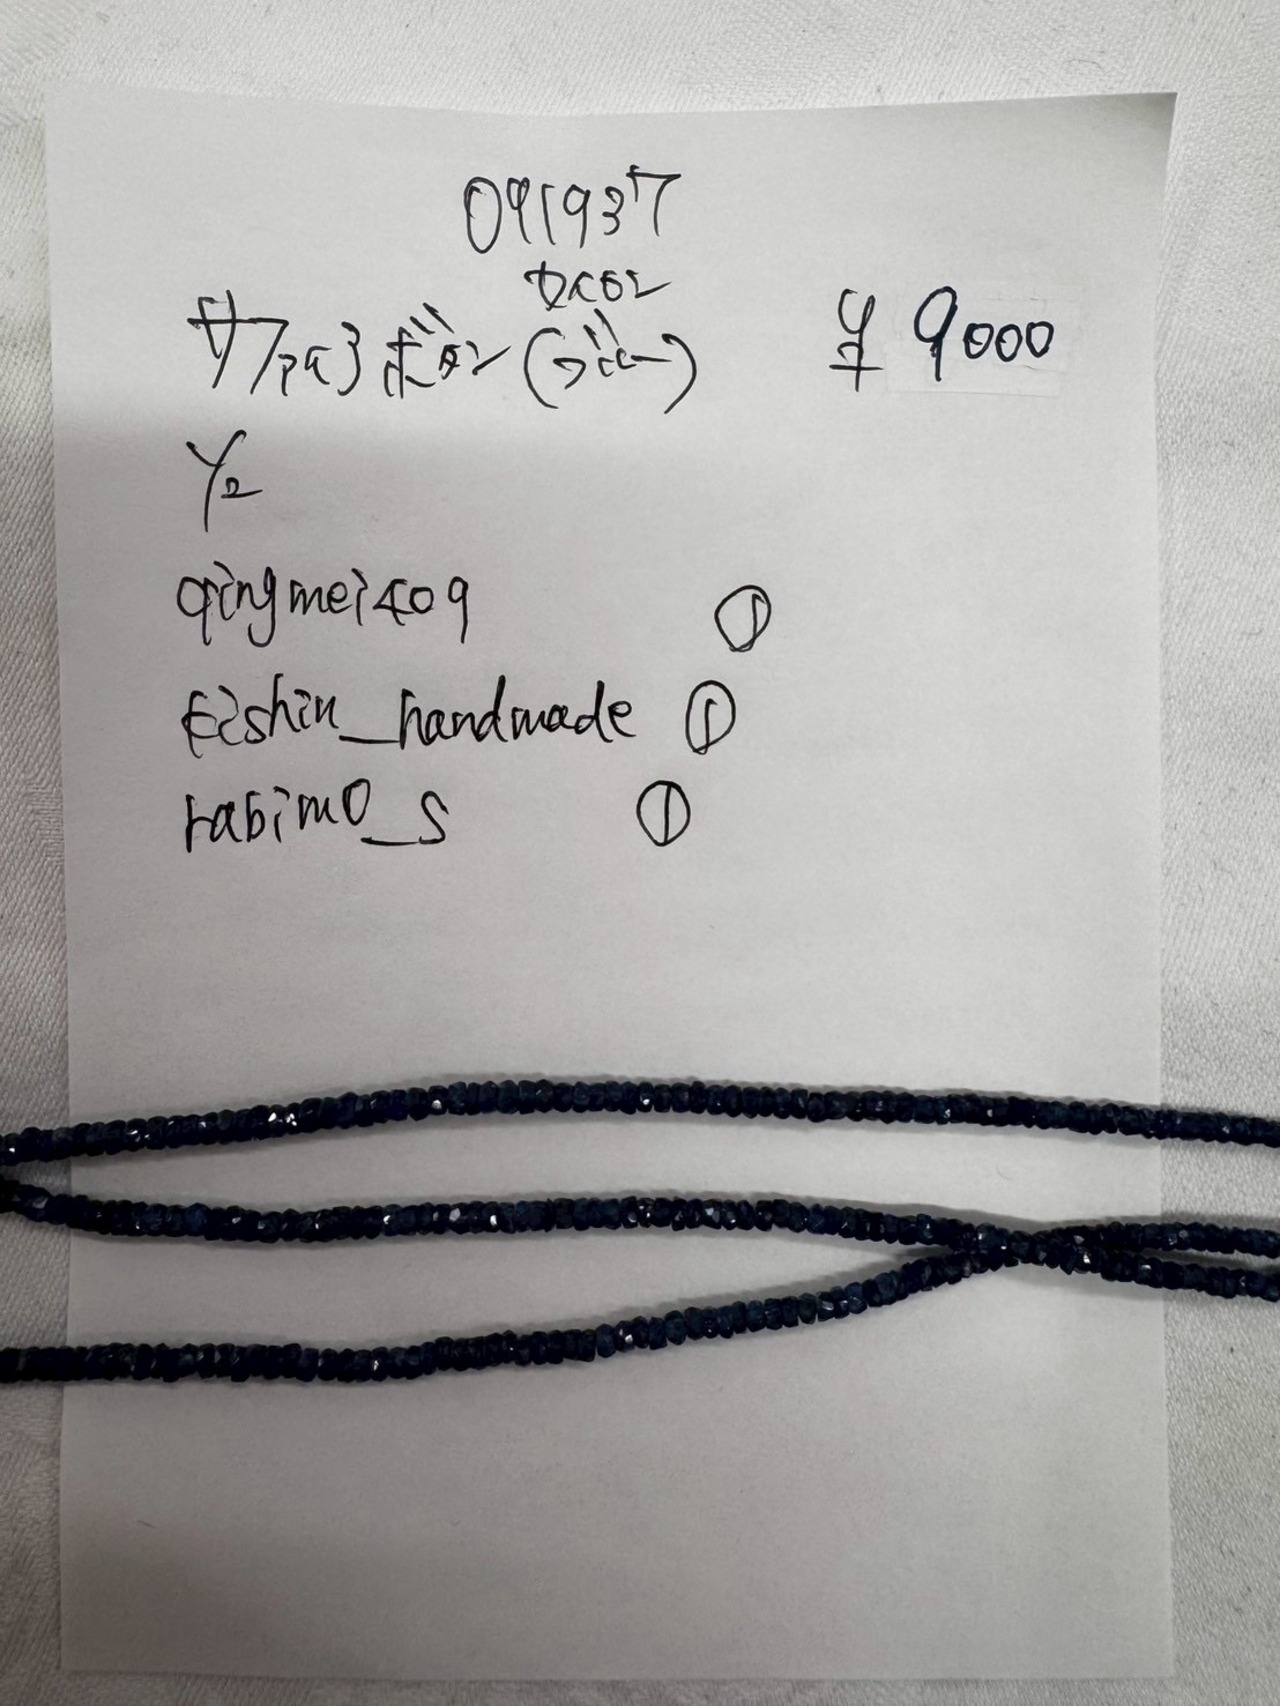 091937
サファイヤボタン(ブルー) ¥9000
Y2
qingmei409 ①
Eishin_handmade ①
rabimo_s ①